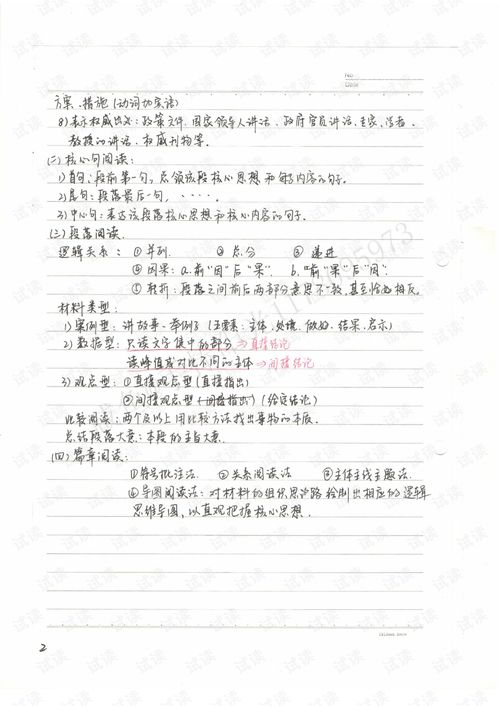 NO.
DATE
方案、措施(动词加宾语)
8)表示权威出处:政策文件、国家领导人讲话、政府官员讲话、专家、学者、
教授的讲话、权威刊物等。
(二)核心句阅读:
1)首句:段前第一句,总领该段核心思想和内容的句子。
2)尾句:段落最后一句,·····
3)中心句:表达该段落核心思想和核心内容的句子。
(三)段落阅读.
逻辑关系: ①并列. ②总分 ③递进
④因果:a.前"因"后"果". b."前"果"后"因".
⑤转折:段落之间前后两部分意思不一致,甚至恰恰相反.
材料类型:
1)案例型:讲故事、举例子(五要素:主体、处境、做法、结果、启示)
2)数据型:只读文字集中的部分⇒直接结论
读峰值或对比不同的主体⇒间接结论
3)观点型:①直接观点型(直接指出)
②间接观点型(间接指出)(给完结论)
比较阅读:两个及以上用比较方法找出事物的本质.
总结段落大意:本段的主旨大意.
(四)篇章阅读:
①符号批注法. ②关系阅读法 ③主体主线主题法.
④导图阅读法:对材料的组织思路绘制出相应的逻辑
思维导图,以直观把握核心思想.
2
试读